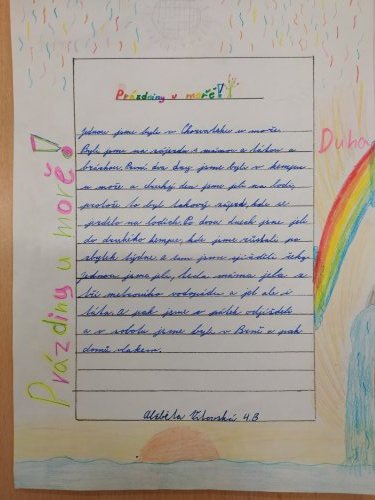 Prázdniny u moře!
Jednou jsme byli v Chorvatsku u moře.
Byli jsme na zájezdu s mámou a tátou a
bráchou. První dva dny jsme byli v kempu
u moře a druhý den jsme jeli na lodi,
protože to byl takový zájezd, kde se
jezdilo na lodích. Po dvou dnech jsme jeli
do druhého kempu, kde jsme zůstali po
zbytek týdne. A tam jsme
jednou jsme jeli, teda máma jela s
tří metrového vodopádu a jel ale i
táta. A pak jsme v pátek odjížděli
a v sobotu jsme byli v Brně a pak
domů vlakem.
Alžběta 4.B
Prázdniny u moře!
Duha